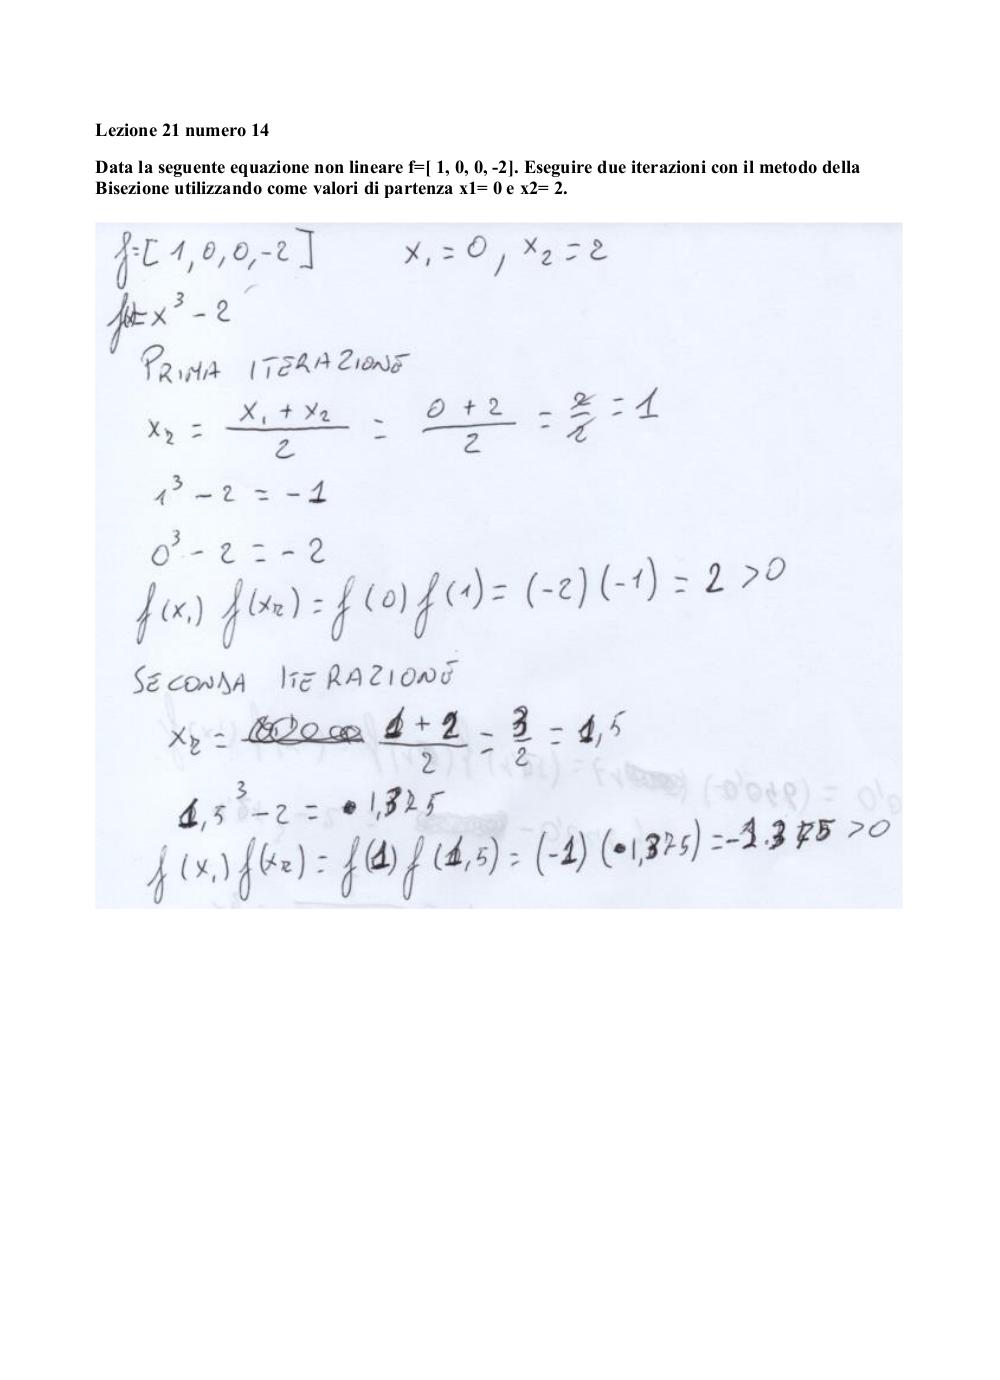 Lezione 21 numero 14
Data la seguente equazione non lineare f=[ 1, 0, 0, -2]. Eseguire due iterazioni con il metodo della
Bisezione utilizzando come valori di partenza x1= 0 e x2= 2.
f=[1,0,0,-2] x₁=0, x₂=2
f(x)=x³-2
PRIMA ITERAZIONE
x₂ = (x₁ + x₂)/2 = (0 + 2)/2 = 2/2 = 1
1³ - 2 = -1
0³ - 2 = -2
f(x₁) f(x₂) = f(0) f(1) = (-2)(-1) = 2 >0
SECONDA ITERAZIONE
x₂ = (1 + 2)/2 = 3/2 = 1,5
1,5³ - 2 = 1,375
f(x₁) f(x₂) = f(1) f(1,5) = (-1)(1,375) = -1.375 >0